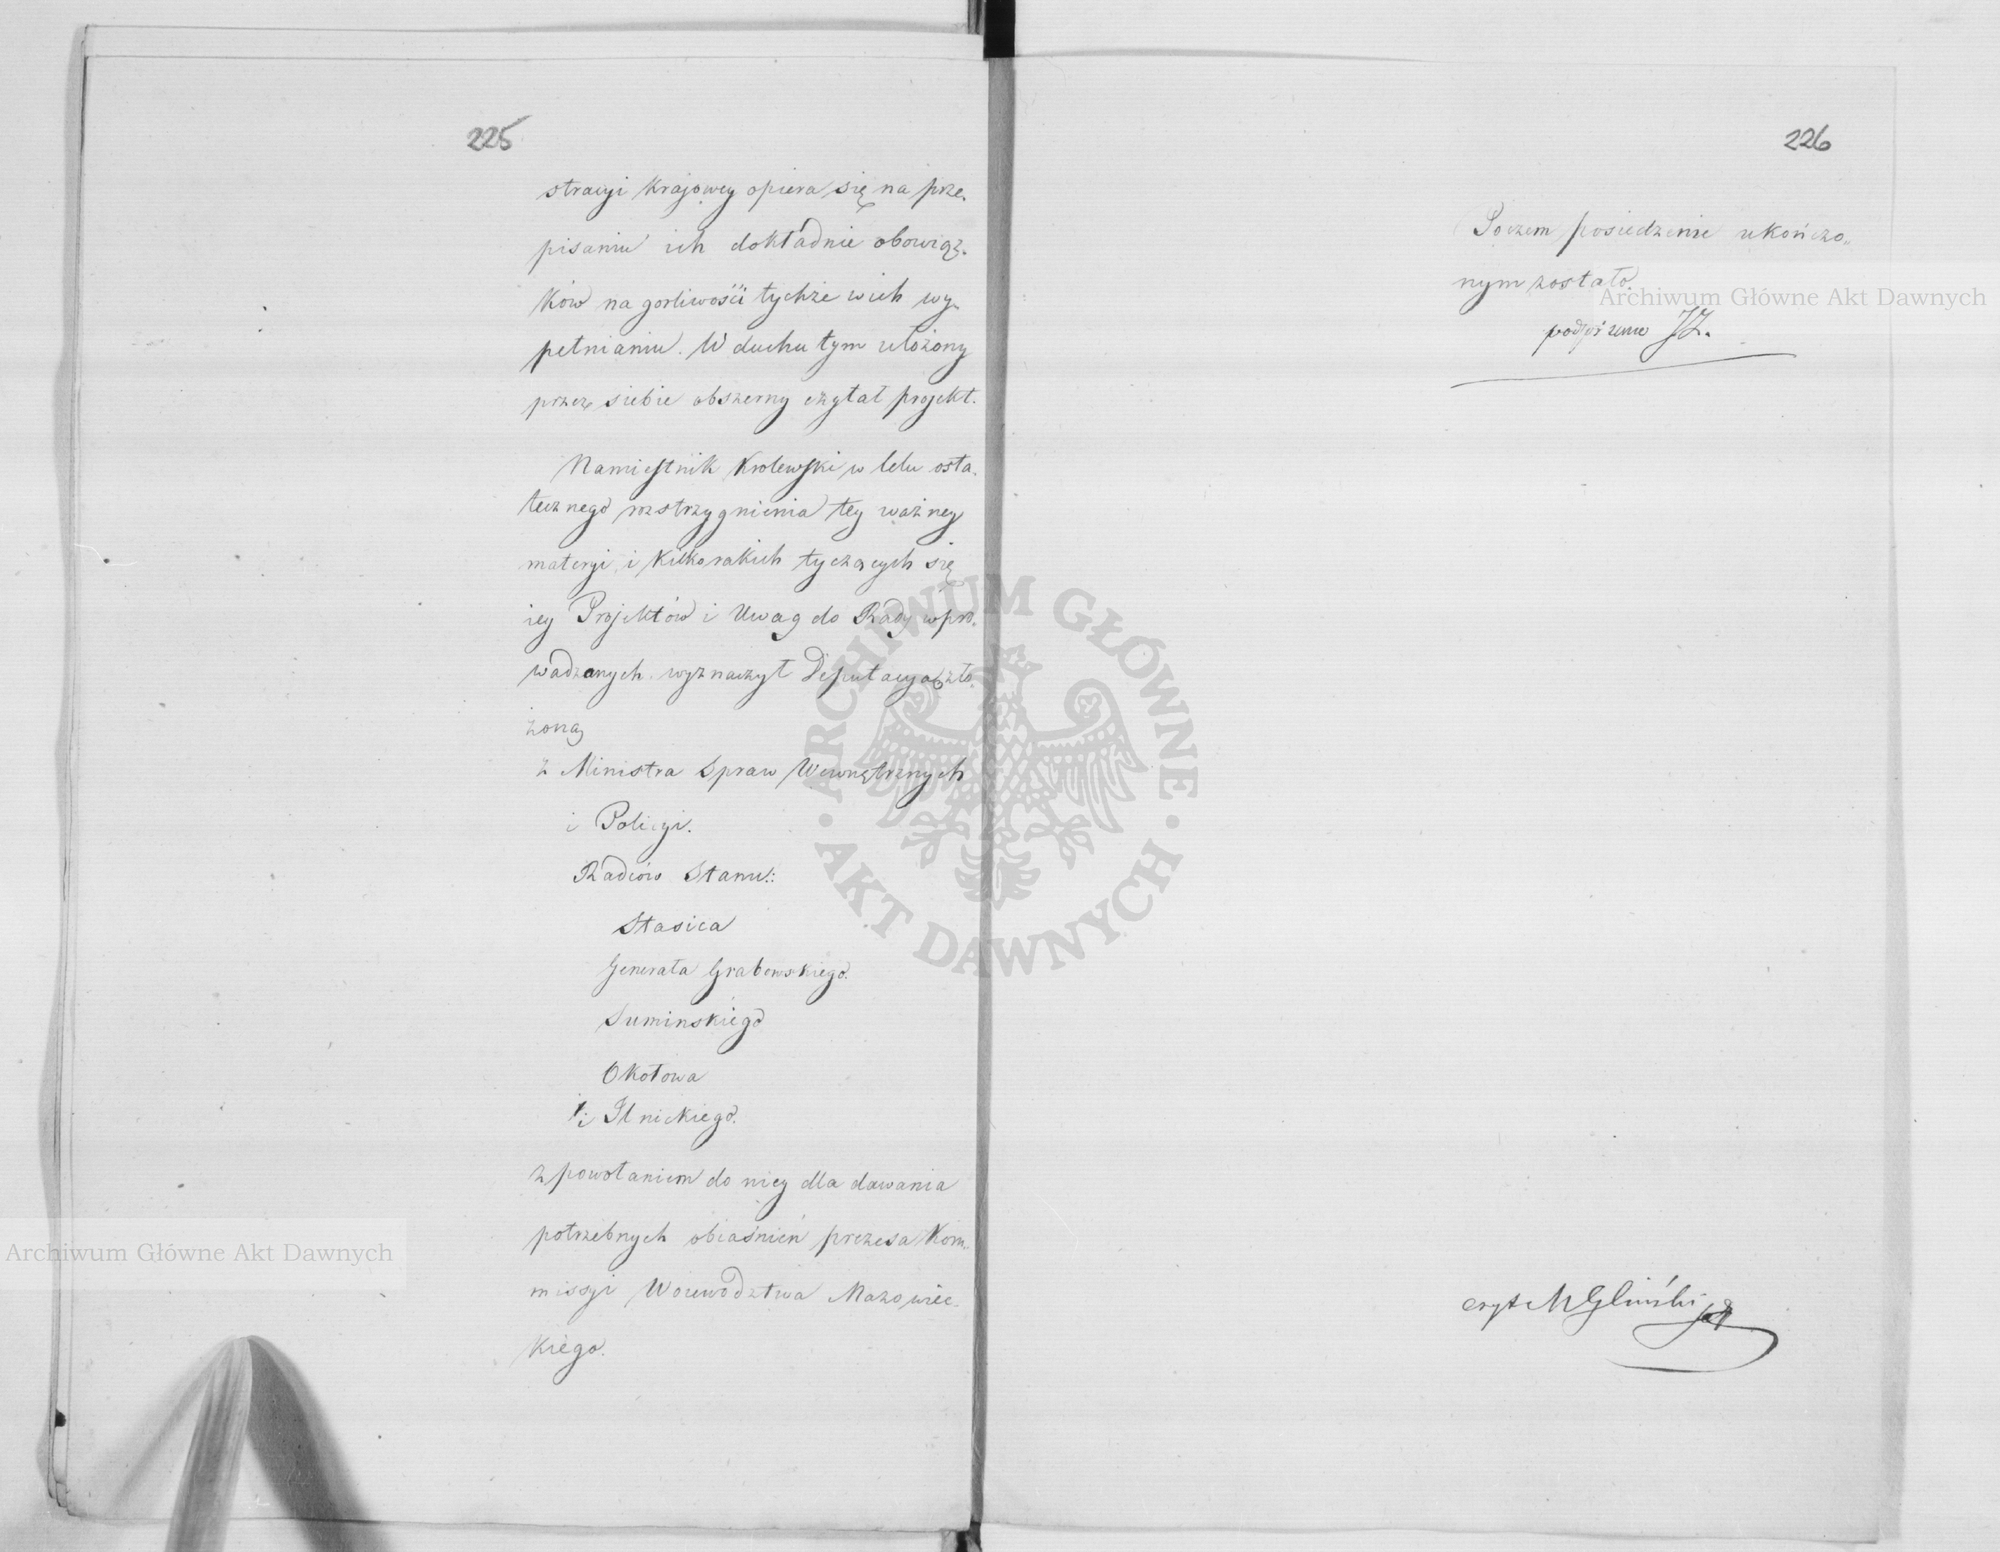 225
stracyi Krajowey opiera się na prze-
pisaniu ich dokładnie obowiąz-
ków na gorliwości tychże w ich wy-
pełnianiu. W duchu tym ułożony
przez siebie obszerny czytał projekt.
Namiestnik Krolewski w celu osta-
tecznego rozstrzygnienia tey ważney
materyi i kilkorakich tyczących się
iey Projektów i Uwag do Rady wpro-
wadzanych wyznaczył Deputacyą zło-
żoną
z Ministra Spraw Wewnętrznych
i Policyi.
Radców Stanu:
Stasica
Generała Grabowskiego.
Suminskiego
Okołowa
i Ilnickiego.
z powołaniem do niey dla dawania
potrzebnych obiaśnień prezesa Kom-
missyi Woiewodztwa Mazowiec-
kiego.
226
Poczem posiedzenie ukończo-
nym zostało.
podpisano JZ.
czyt M Gliński
Archiwum Główne Akt Dawnych
Archiwum Główne Akt Dawnych
ARCHIWUM GŁÓWNE
AKT DAWNYCH